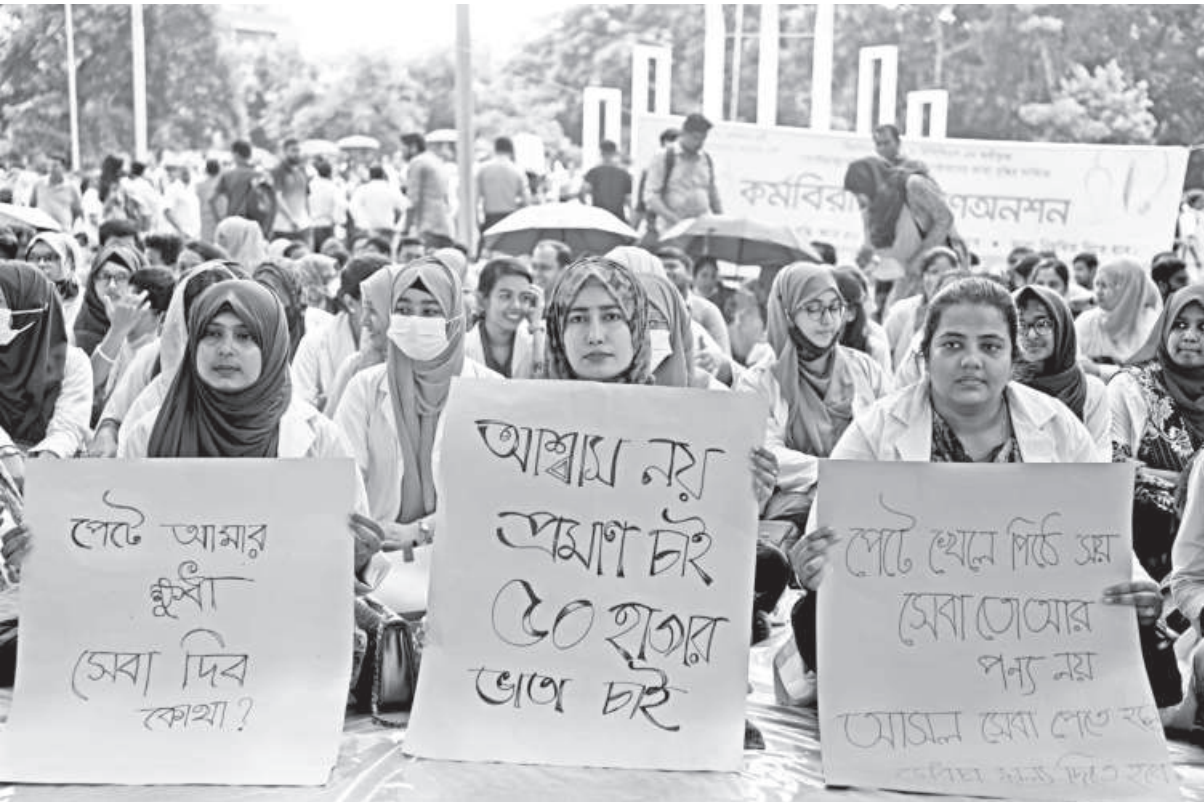 কর্মবির
ণঅনশন
পেটে আমার
ক্ষুধা
সেবা দিব
কোথা?
আশ্বাস নয়
প্রমাণ চাই
৫০ হাজার
ভাতা চাই
পেটে খেলে পিঠে সয়
সেবা তো আর
পন্য নয়
আসল সেবা পেতে হলে
দিতে হবে